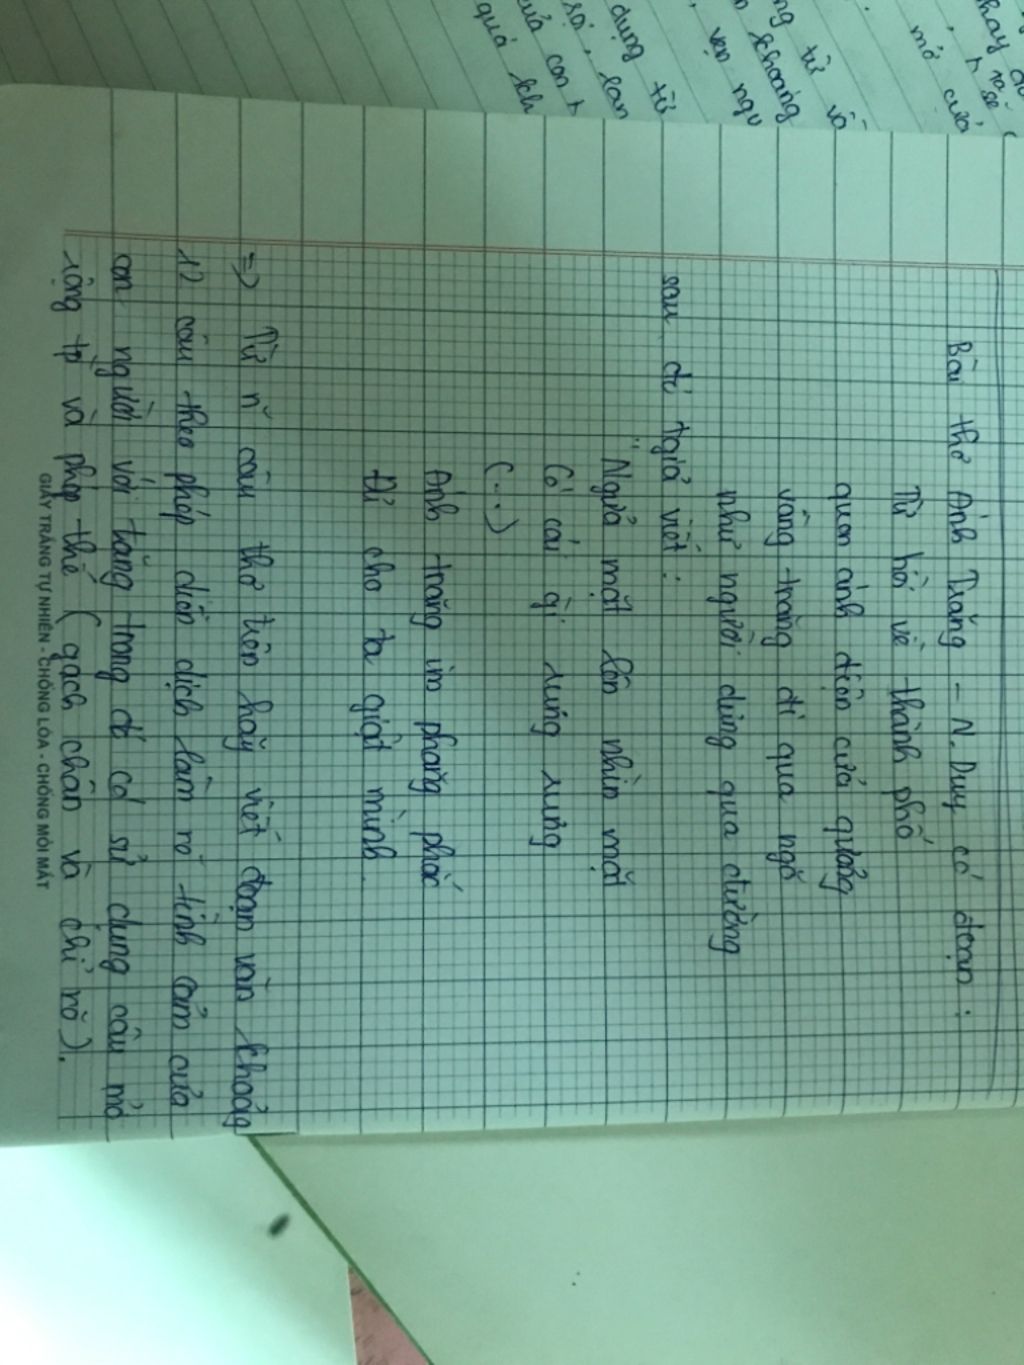 Bài thơ Ánh Trăng - N. Duy có đoạn :
Từ hồi về thành phố
quen ánh điện cửa gương
vầng trăng đi qua ngõ
như người dưng qua đường
sau đó tgiả viết :
"Ngửa mặt lên nhìn mặt
Có cái gì rưng rưng
(...)
Ánh trăng im phăng phắc
Đủ cho ta giật mình.
=> Từ n~ câu thơ trên hãy viết đoạn văn khoảng
12 câu theo phép diễn dịch làm rõ tình cảm của
con người với trăng trong đó có sử dụng câu mở
rộng tp và phép thế (gạch chân và chỉ rõ).
GIẤY TRẮNG TỰ NHIÊN - CHỐNG LÓA - CHỐNG MỎI MẮT
dụng từ
của con
quá kh